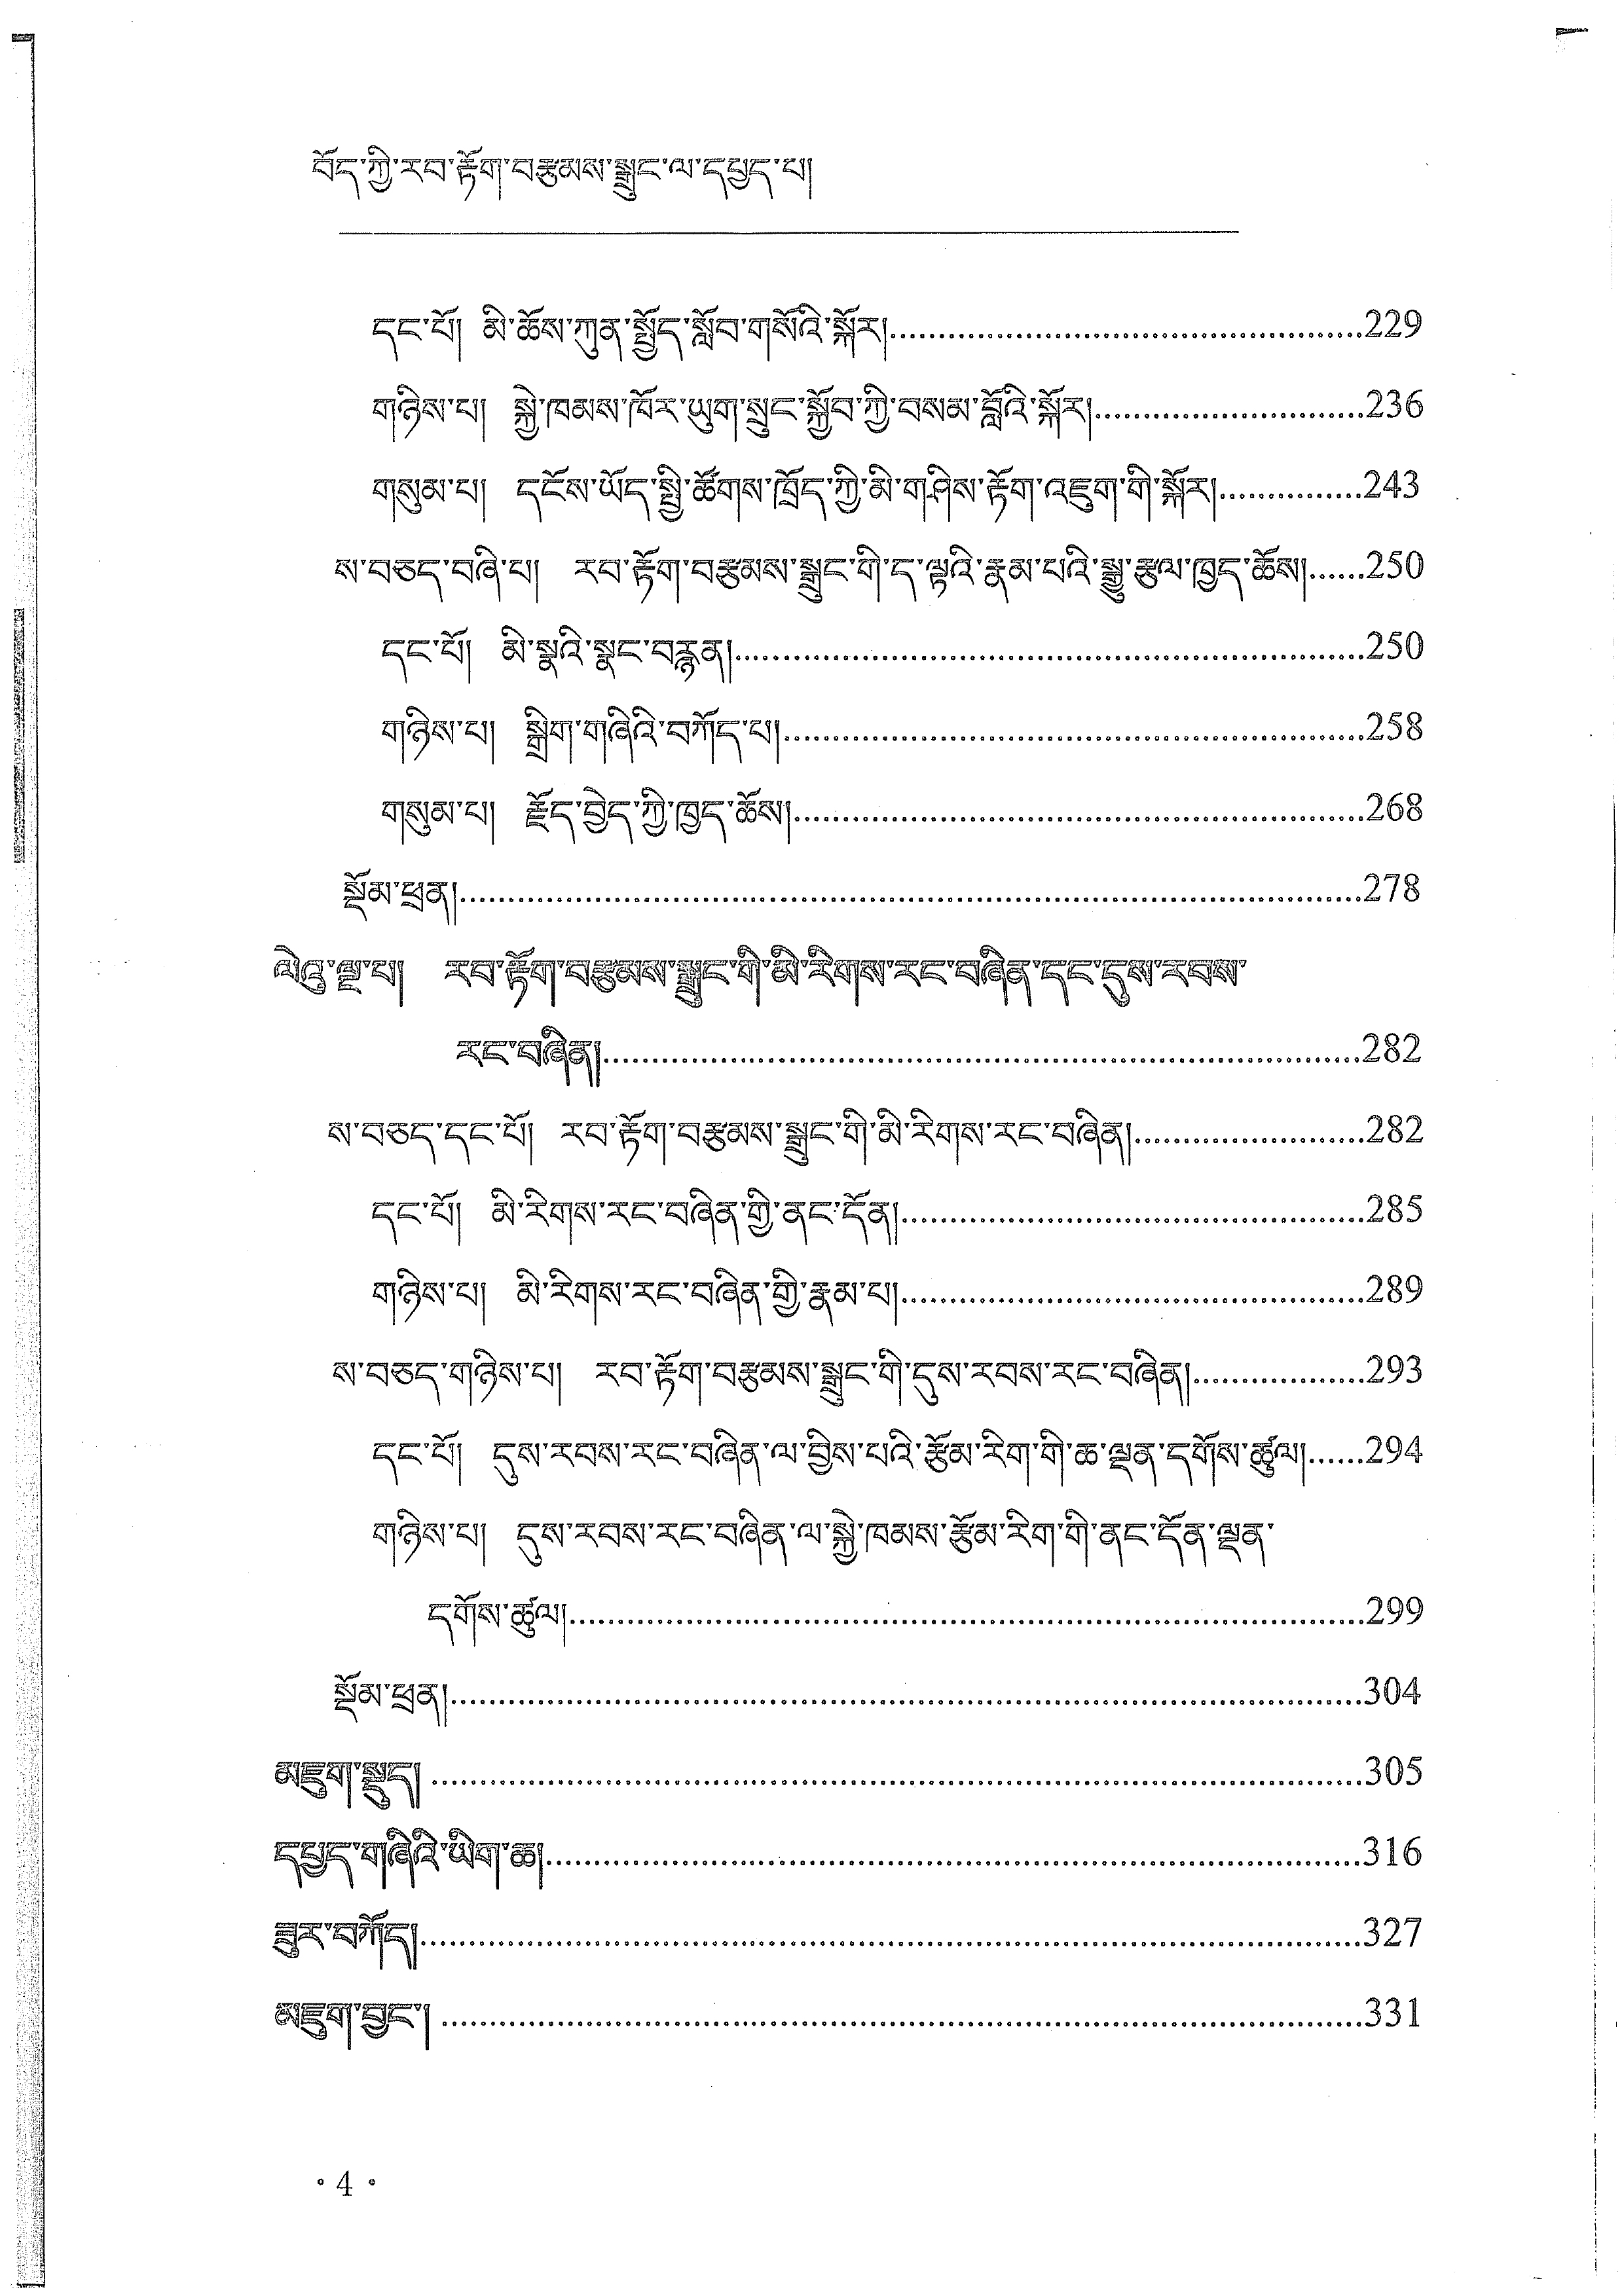 བོད་ཀྱི་རབ་རྟོག་བརྩམས་སྒྲུང་ལ་དཔྱད་པ།
དང་པོ། མི་ཆོས་ཀུན་སྤྱོད་སློབ་གསོའི་སྐོར།................................................229
གཉིས་པ། སྐྱེ་ཁམས་ཁོར་ཡུག་སྲུང་སྐྱོབ་ཀྱི་བསམ་བློའི་སྐོར།............................236
གསུམ་པ། དངོས་ཡོད་སྤྱི་ཚོགས་ཁྲོད་ཀྱི་མི་གཤིས་རྟོག་འཇུག་གི་སྐོར།...............243
ས་བཅད་བཞི་པ། རབ་རྟོག་བརྩམས་སྒྲུང་གི་ད་ལྟའི་རྣམ་པའི་སྒྱུ་རྩལ་ཁྱད་ཆོས།......250
དང་པོ། མི་སྣའི་སྣང་བརྙན།................................................................250
གཉིས་པ། སྒྲིག་གཞིའི་བཀོད་པ།...........................................................258
གསུམ་པ། རྗོད་བྱེད་ཀྱི་ཁྱད་ཆོས།..........................................................268
སྡོམ་ཕྲན།............................................................................................278
ལེའུ་ལྔ་པ། རབ་རྟོག་བརྩམས་སྒྲུང་གི་མི་རིགས་རང་བཞིན་དང་དུས་རབས་
རང་བཞིན།.............................................................................282
ས་བཅད་དང་པོ། རབ་རྟོག་བརྩམས་སྒྲུང་གི་མི་རིགས་རང་བཞིན།........................282
དང་པོ། མི་རིགས་རང་བཞིན་གྱི་ནང་དོན།...............................................285
གཉིས་པ། མི་རིགས་རང་བཞིན་གྱི་རྣམ་པ།...............................................289
ས་བཅད་གཉིས་པ། རབ་རྟོག་བརྩམས་སྒྲུང་གི་དུས་རབས་རང་བཞིན།..................293
དང་པོ། དུས་རབས་རང་བཞིན་ལ་བྱིས་པའི་རྩོམ་རིག་གི་ཆ་ལྡན་དགོས་ཚུལ།......294
གཉིས་པ། དུས་རབས་རང་བཞིན་ལ་སྐྱེ་ཁམས་རྩོམ་རིག་གི་ནང་དོན་ལྡན་
དགོས་ཚུལ།.................................................................................299
སྡོམ་ཕྲན།.............................................................................................304
མཇུག་སྡུད། ...............................................................................................305
དཔྱད་གཞིའི་ཡིག་ཆ།...................................................................................316
ཟུར་བཀོད།................................................................................................327
མཇུག་བྱང་། ..............................................................................................331
• 4 •